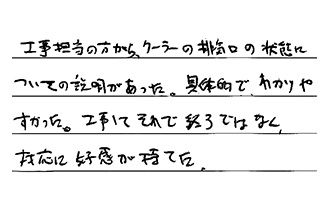 工事担当の方から、クーラーの排気口の状態に
ついての説明があった。具体的で、わかりや
すかった。工事してそれで終了ではなく、
対応に好感が持てた。